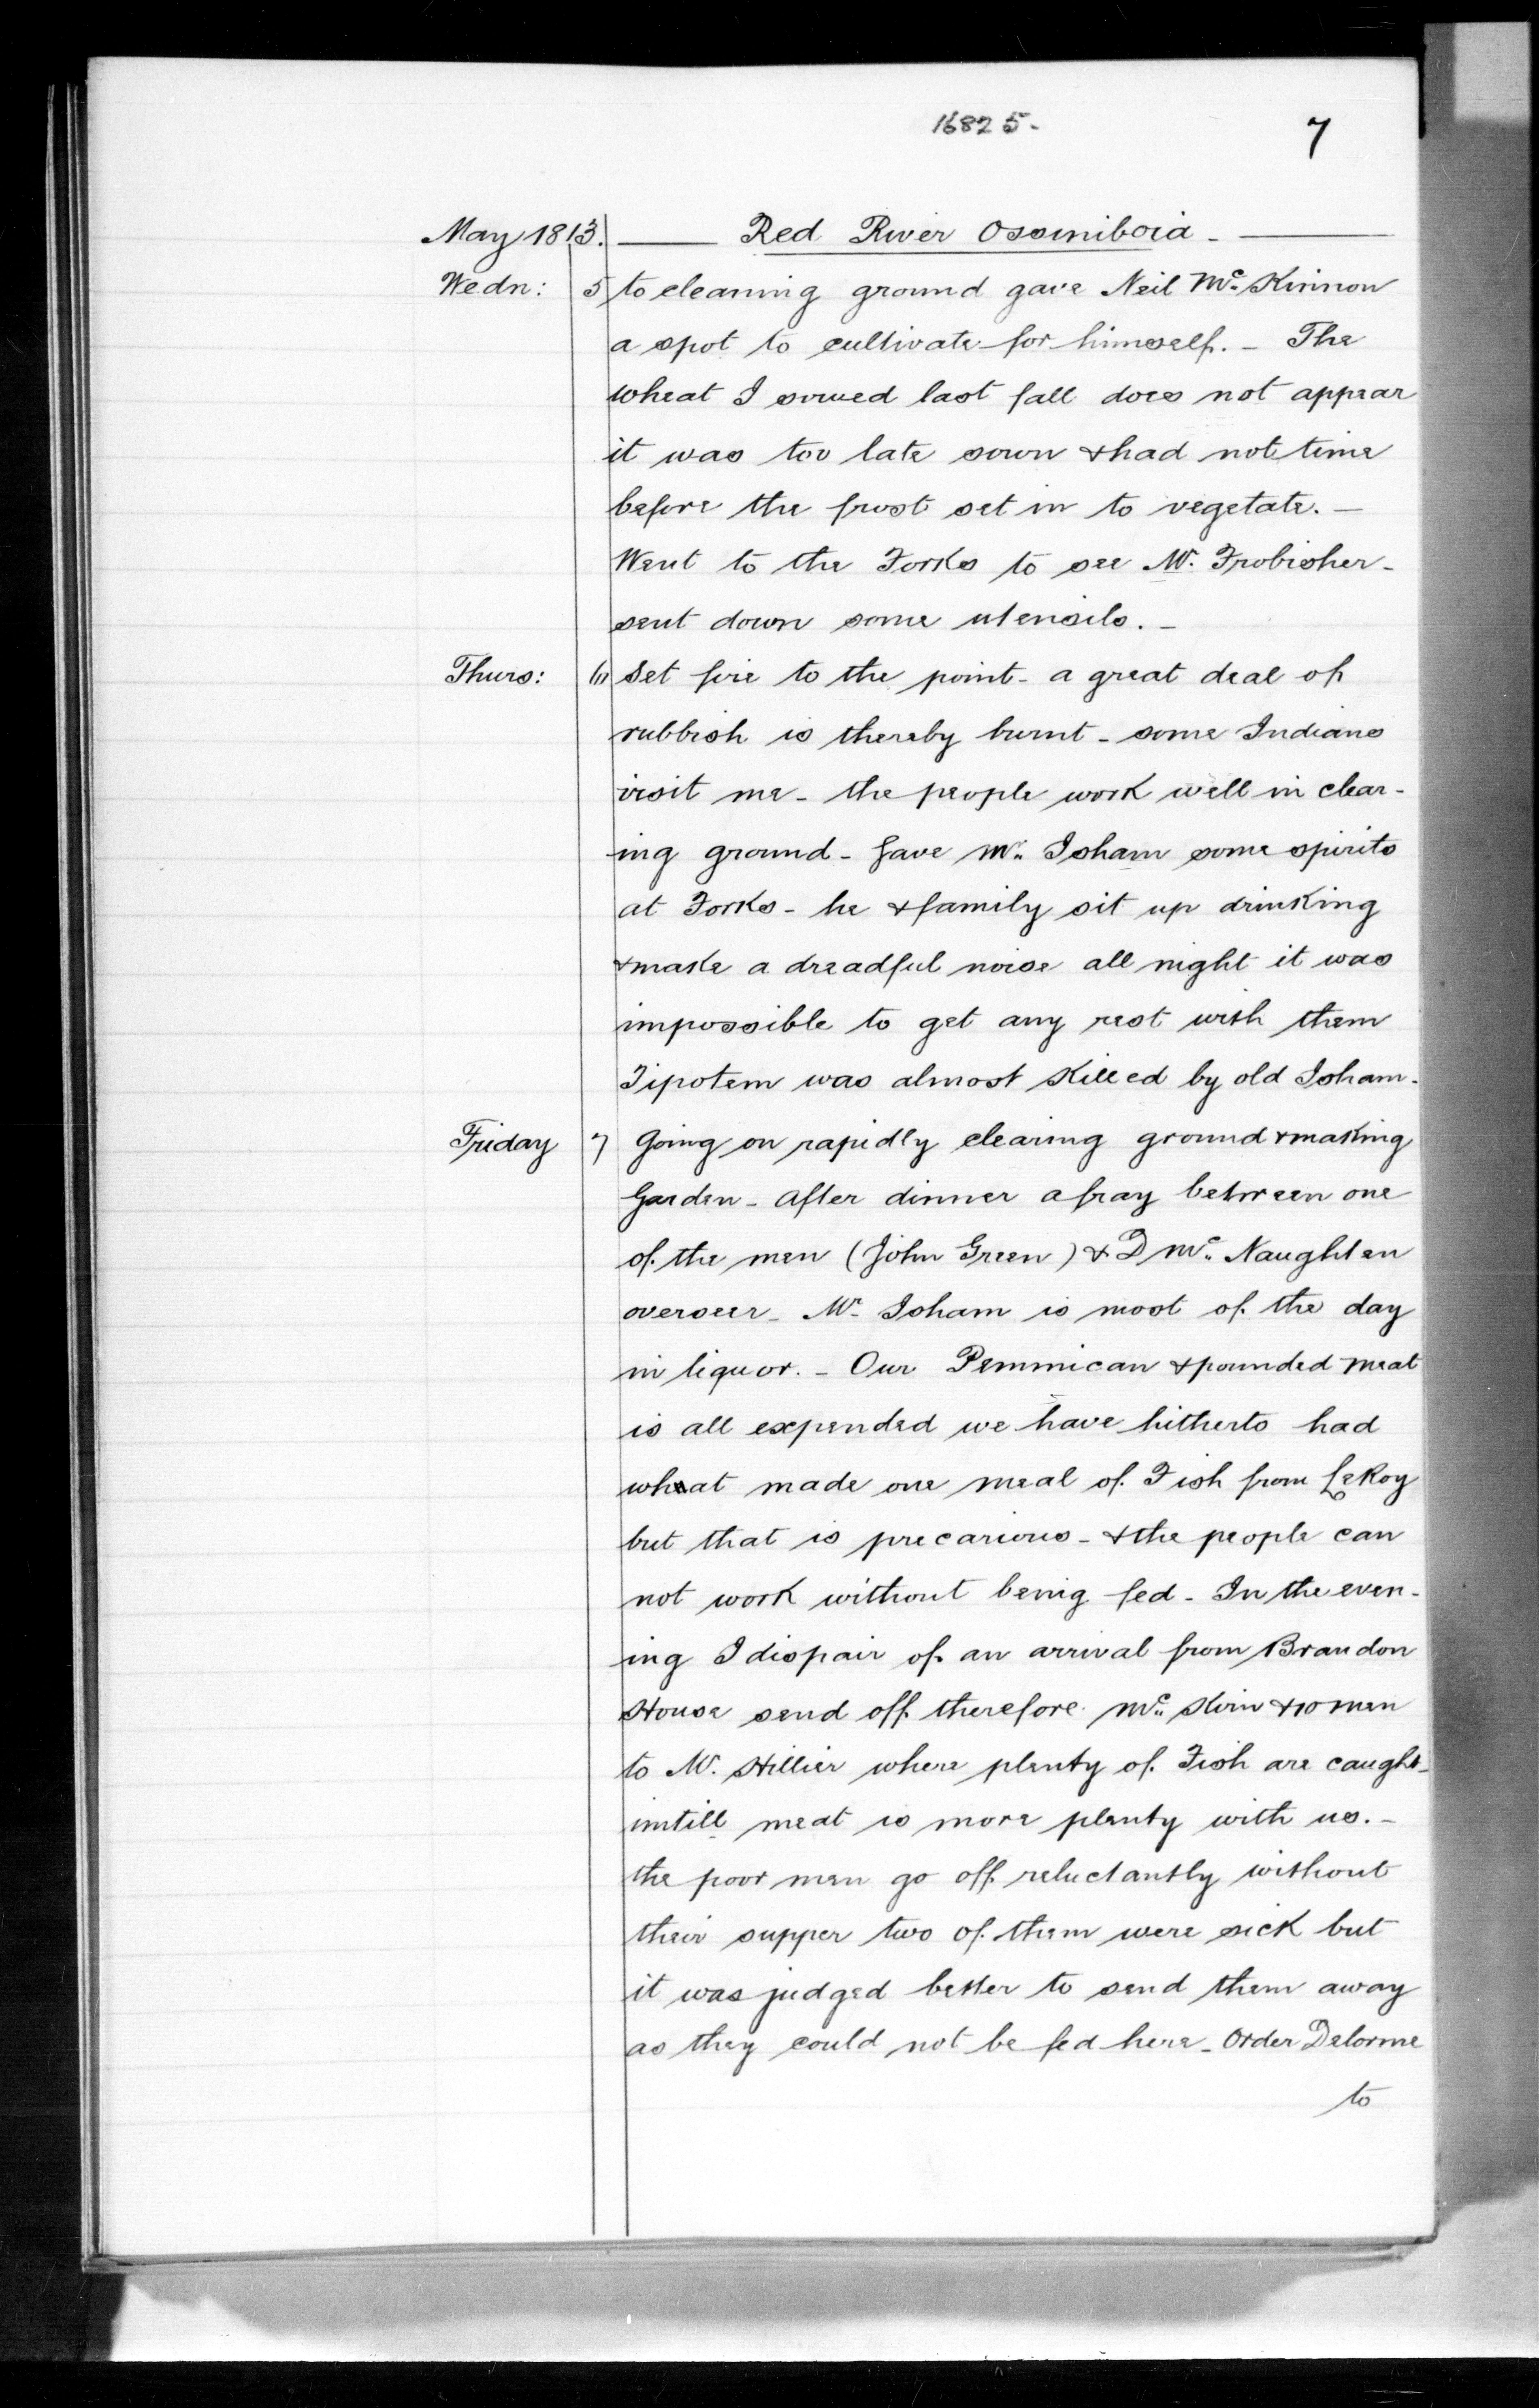 16825.
7
May 1813. Red River Ossiniboia.
Wedn: 5 to cleaning ground gave Neil Mc. Kinnon
a spot to cultivate for himself. - The
wheat I sowed last fall does not appear
it was too late sown & had not time
before the frost set in to vegetate. -
Went to the Forks to see Mr. Frobisher -
sent down some utensils. -
Thurs: 6 Set fire to the point - a great deal of
rubbish is thereby burnt - some Indians
visit me - the people work well in clear-
ing ground - Gave Mr. Isham some spirits
at Forks - he & family sit up drinking
& make a dreadful noise all night it was
impossible to get any rest with them
Tipotem was almost killed by old Isham.
Friday 7 Going on rapidly clearing ground & making
Garden - After dinner a fray between one
of the men (John Green) & D Mc. Naughten
overseer - Mr. Isham is most of the day
in liquor. - Our Pemmican & pounded meat
is all expended we have hitherto had
what made one meal of Fish from LeRoy
but that is precarious - & the people can
not work without being fed - In the even-
ing I dispair of an arrival from Brandon
House send off therefore Mc. Kim & 10 men
to Mr. Hillier where plenty of Fish are caught -
untill meat is more plenty with us. -
the poor men go off reluctantly without
their supper two of them were sick but
it was judged better to send them away
as they could not be fed here - Order Delorme
to